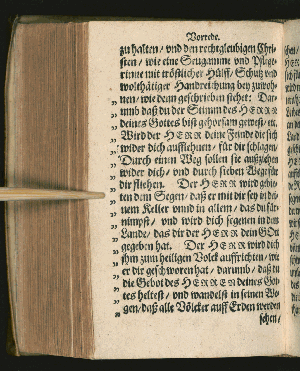 Vorrede.
zu halten / vnd den rechtgleubigen Chri-
sten / wie eine Seugamme vnd Pflege-
rinne mit tröstlicher Hülff / Schutz vnd
wolthätiger Handreichung bey zuwoh-
nen / wie denn geschrieben stehet: Dar-
umb daß du der Stimm des HERRN
deines Gottes bist gehorsam gewest / etc.
Wird der HERR deine Feinde die sich
wider dich aufflehnen / für dir schlagen /
Durch einen Weg sollen sie außziehen
wider dich / vnd durch sieben Wege für
dir fliehen. Der HERR wird gebie-
ten dem Segen / daß er mit dir sey in dei-
nem Keller vnnd in allem / das du für-
nimpst / vnd wird dich segenen in dem
Lande / das dir der HERR dein GOtt
gegeben hat. Der HERR wird dich
ihm zum heiligen Volck auffrichten / wie
er dir geschworen hat / darumb / daß du
die Gebot des HERREN deines Got-
tes heltest / vnd wandelst in seinen We-
gen / daß alle Völcker auff Erden werden
sehen /